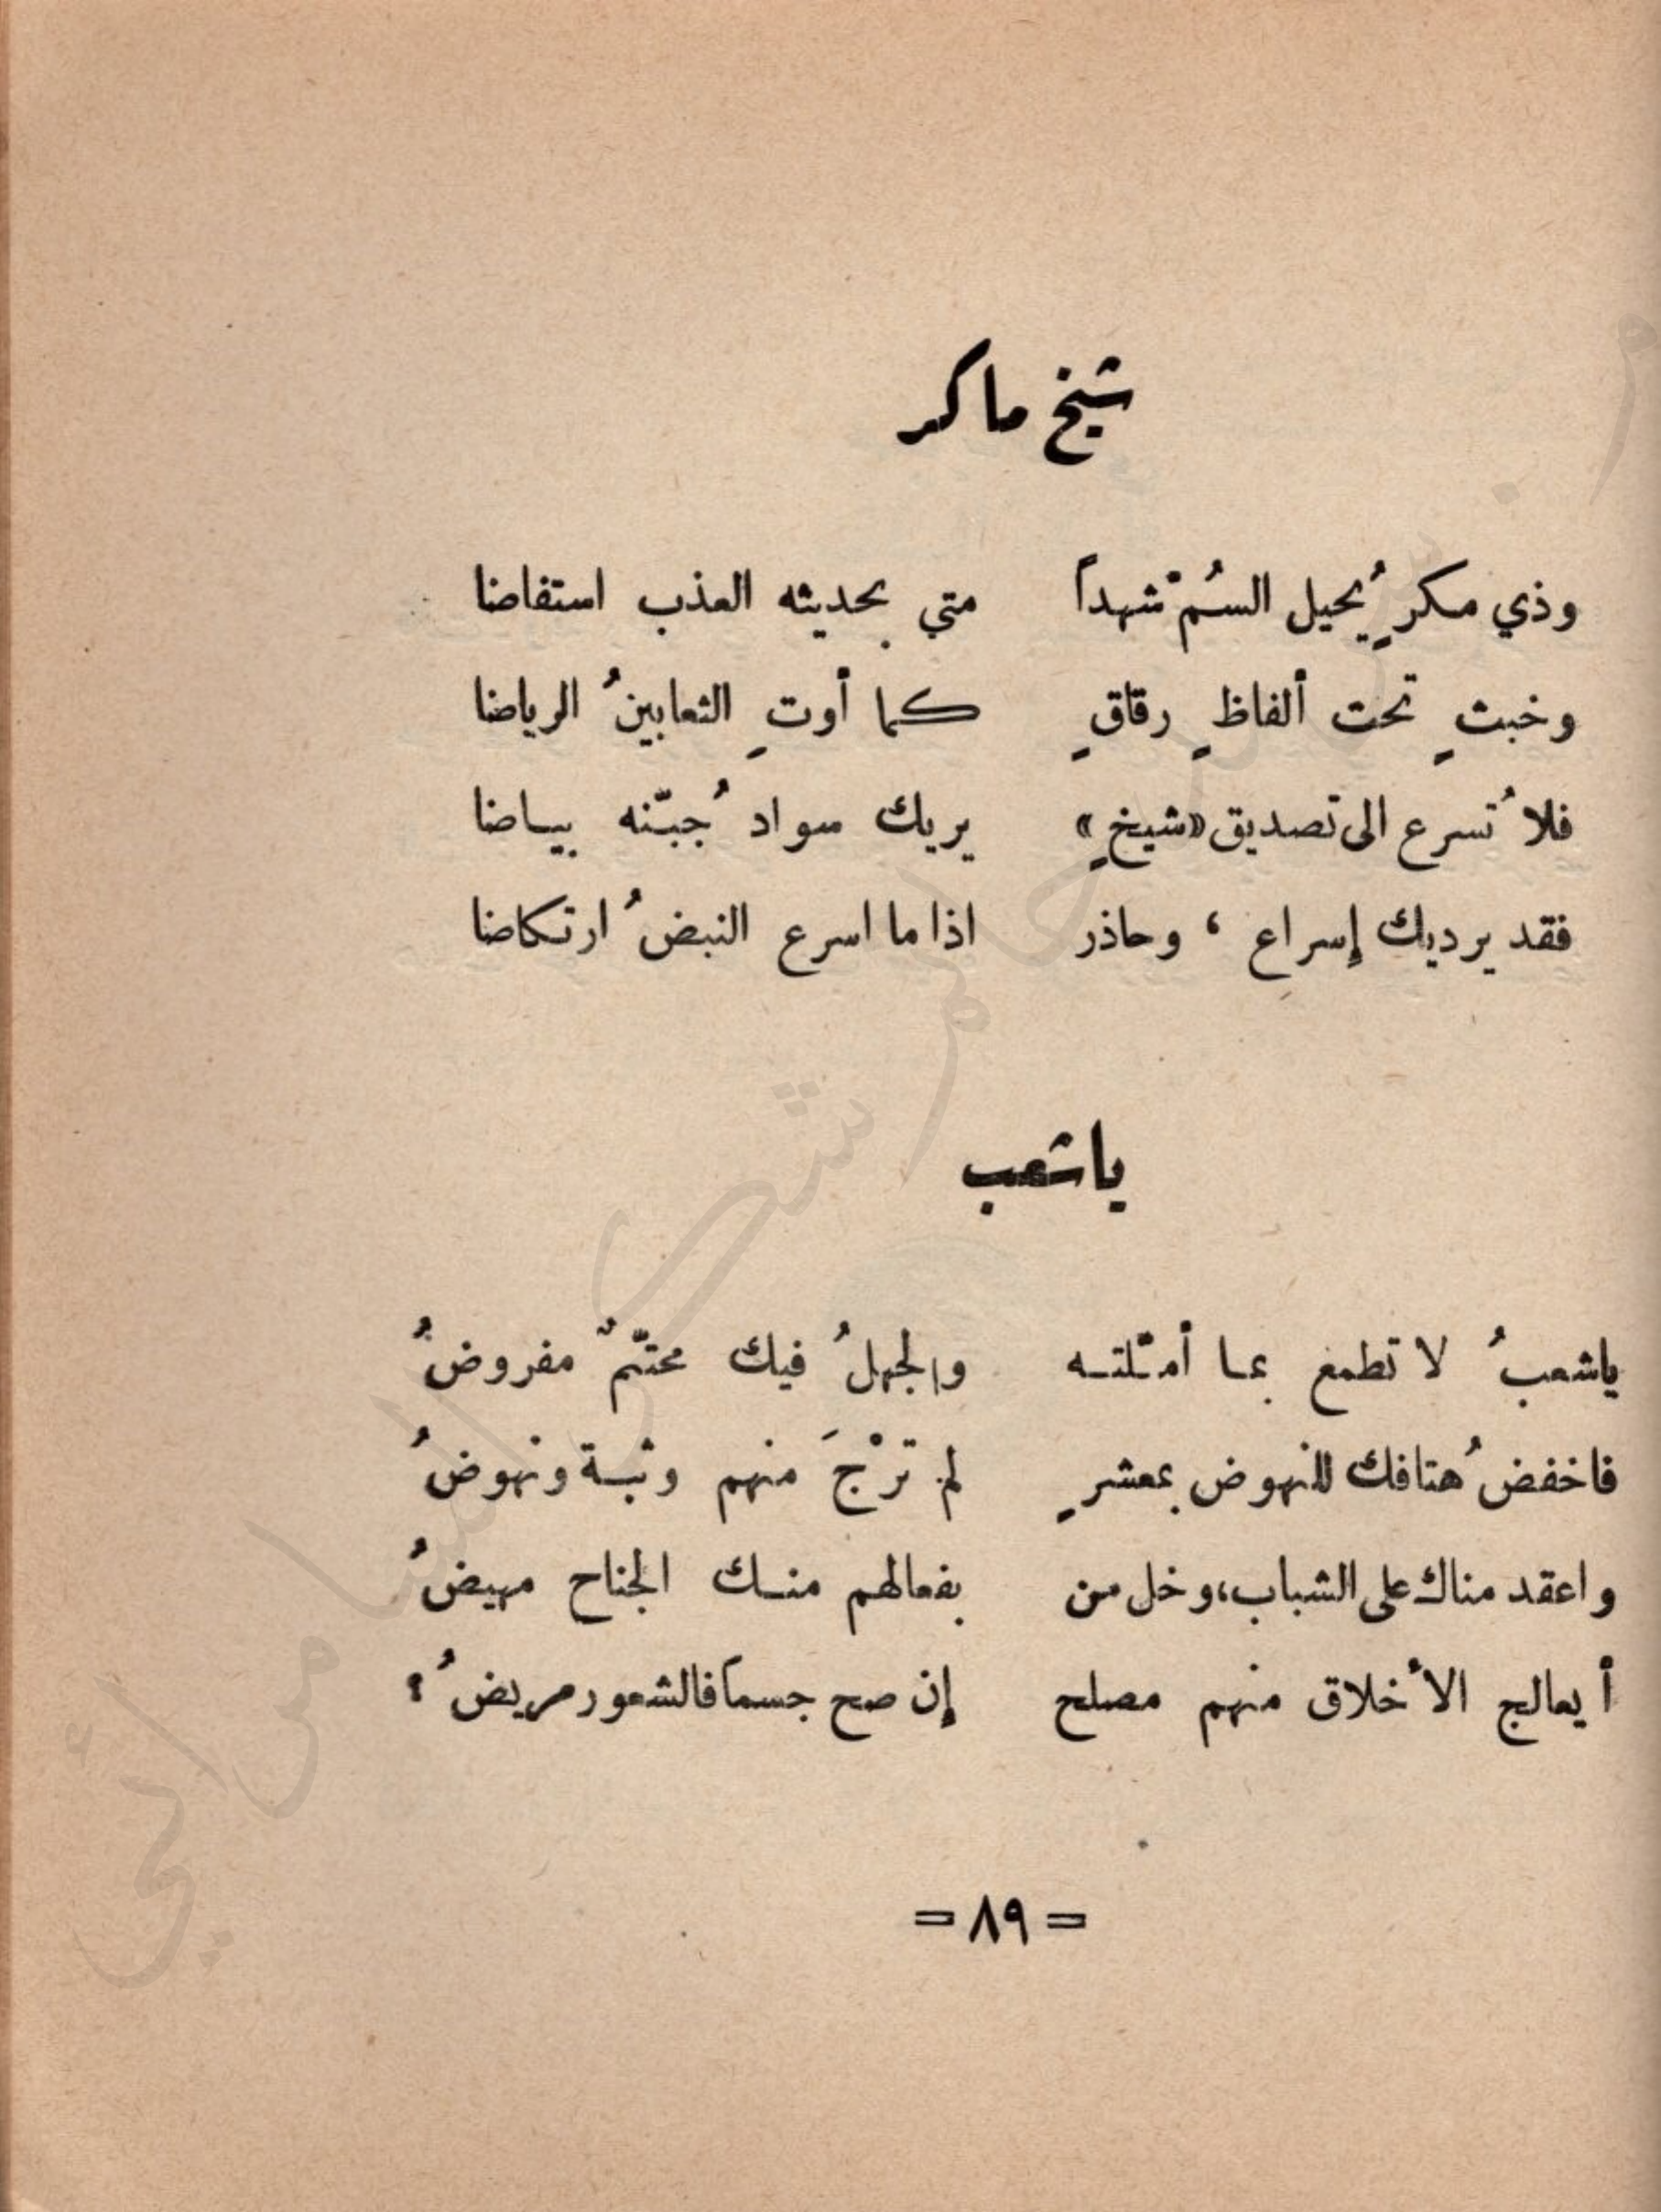 شيخ ماكر
وذي مكرٍ يُحيل السُمّ شهداً متي بحديثه العذب استفاضا
وخبثٍ تحت ألفاظٍ رقاقٍ كما أوتِ الثعابينُ الرياضا
فلا تُسرع الى تصديق «شيخٍ» يريك سواد جُبّته بياضا
فقد يرديك إسراع ، وحاذر اذا ما اسرع النبضُ ارتكاضا
ياشعب
ياشعبُ لا تطمع بما أمّلتـه والجهلُ فيك محتّمٌ مفروضُ
فاخفض هُتافك للنهوض بمعشرٍ لم تَرْجُ منهم وثبـة ونهوضُ
واعقد مناك على الشباب، وخل من بفعالهم منـك الجناح مهيضُ
أيعالج الأخلاق منهم مصلح إن صح جسماً فالشعور مريضُ ؟
= ٨٩ =